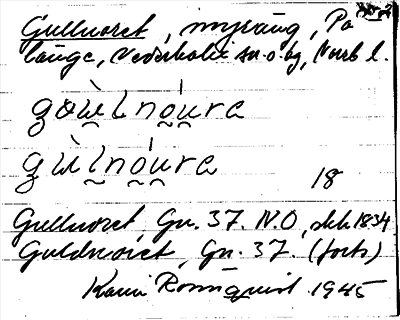 Gullnoret, myräng, På
länge, Nederkalix sn. o. hg, Norrb l.
gɷẁlnọ́ura
gẁlnọ́ura
18
Gullnoret, Gn. 37. N.O, 1834
Guldnoret, Gn. 37. (forts)
Karin Rosenquist 1945